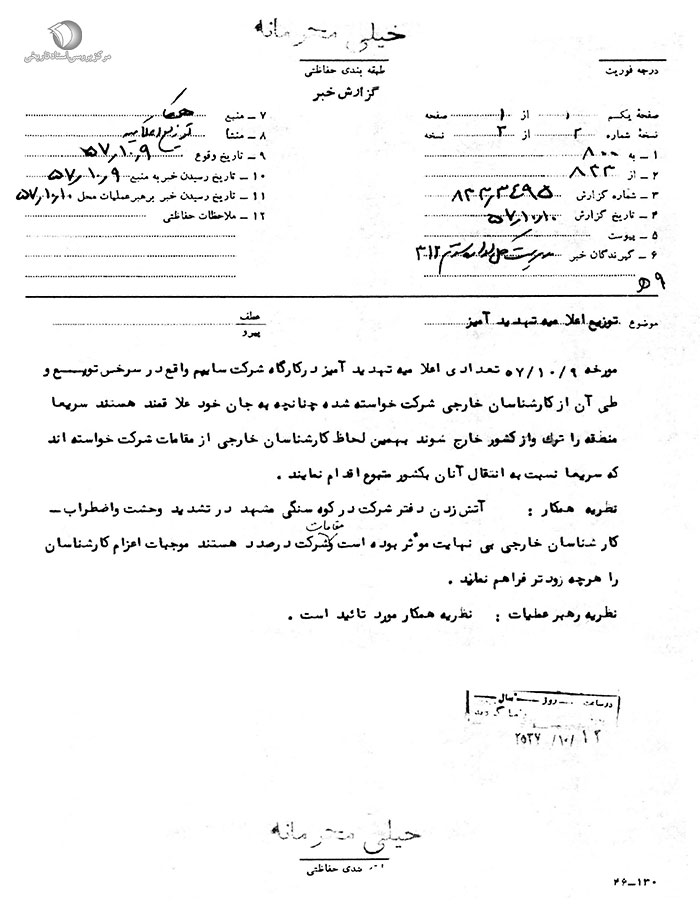 خیلی محرمانه
مرکز بررسی اسناد تاریخی
طبقه بندی حفاظتی
درجه فوریت
گزارش خبر
صفحه یکم ۱ از ۱ صفحه
نسخه شماره ۲ از ۳ نسخه
۱ ـ به ۸۰۰
۲ ـ از ۸۲۳
۳ ـ شماره گزارش ۸۲۳/۳۴۹۵
۴ ـ تاریخ گزارش ۵۷/۱۰/۱۰
۵ ـ پیوست
۶ ـ گیرندگان خبر مدیریت کل اداره سوم ۳۱۲
۷ ـ منبع همکار
۸ ـ منشأ توزیع اعلامیه
۹ ـ تاریخ وقوع ۵۷/۱۰/۹
۱۰ ـ تاریخ رسیدن خبر به منبع ۵۷/۱۰/۹
۱۱ ـ تاریخ رسیدن خبر برهبر عملیات محل ۵۷/۱۰/۱۰
۱۲ ـ ملاحظات حفاظتی
ه‍ ۹
موضوع توزیع اعلامیه تهدید آمیز
عطف
پیرو
مورخه ۵۷/۱۰/۹ تعدادی اعلامیه تهدید آمیز درکارگاه شرکت سایپم واقع در سرخس توزیع و
طی آن از کارشناسان خارجی شرکت خواسته شده چنانچه به جان خود علاقمند هستند سریعا
منطقه را ترک واز کشور خارج شوند بهمین لحاظ کارشناسان خارجی از مقامات شرکت خواسته اند
که سریعا نسبت به انتقال آنان بکشور متبوع اقدام نمایند .
نظریه همکار : آتش زدن دفتر شرکت در کوه سنگی مشهد در تشدید وحشت واضطراب ـ
کارشناسان خارجی بی نهایت موثر بوده است و مقامات شرکت درصدد هستند موجبات اعزام کارشناسان
را هرچه زودتر فراهم نمایند .
نظریه رهبر عملیات : نظریه همکار مورد تائید است .
در ساعت روز سال
۲۵۳۷/۱۰/۱۲
خیلی محرمانه
بندی حفاظتی
۲۶ـ۱۳۰